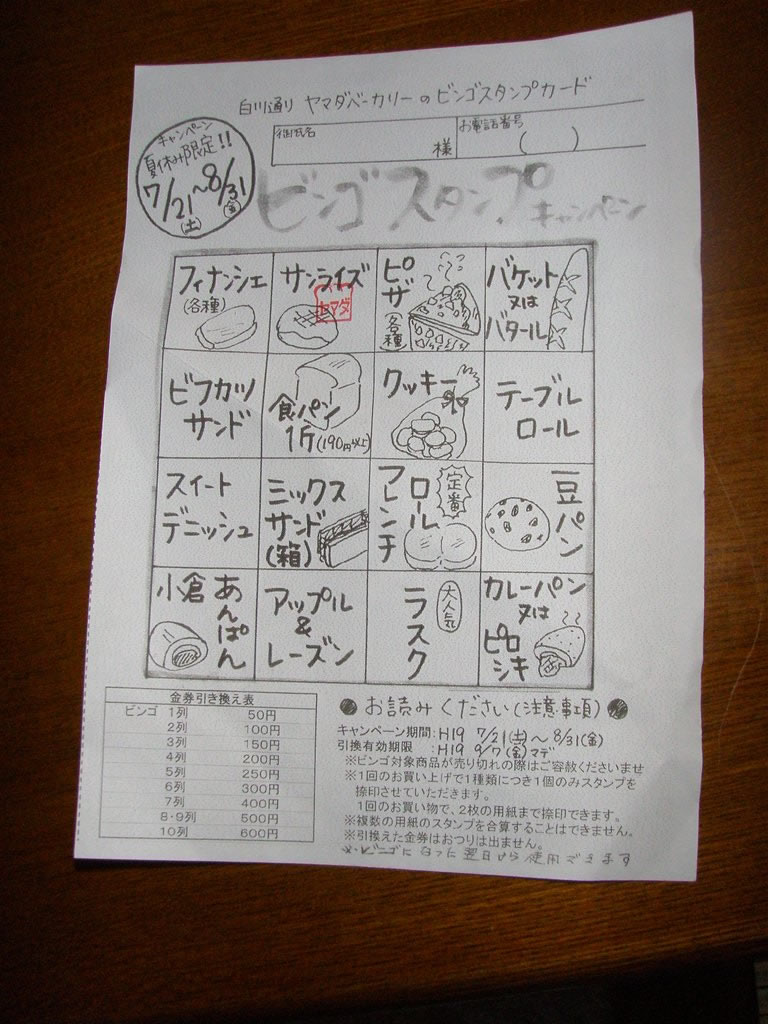 白川通り ヤマダベーカリーのビンゴスタンプカード
御氏名
様
お電話番号
( )
キャンペーン
夏休み限定!!
7/21〜8/31
(土) (金)
ビンゴスタンプキャンペーン
フィナンシェ
(各種)
サンライズ
ヤマダ
ピザ
(各種)
バケット
又は
バタール
ビフカツ
サンド
食パン
1斤(190円以上)
クッキー
テーブル
ロール
スイート
デニッシュ
ミックス
サンド
(箱)
定番
フレンチ
ロール
豆パン
小倉
あんぱん
アップル
&
レーズン
大人気
ラスク
カレーパン
又は
ピロシキ
金券引き換え表
ビンゴ 1列 50円
2列 100円
3列 150円
4列 200円
5列 250円
6列 300円
7列 400円
8・9列 500円
10列 600円
●お読みください(注意事項)●
キャンペーン期間:H19 7/21(土)〜8/31(金)
引換有効期限 :H19 9/7(金)マデ
※ビンゴ対象商品が売り切れの際はご容赦くださいませ
※1回のお買い上げで1種類につき1個のみスタンプを
捺印させていただきます。
1回のお買い物で、2枚の用紙まで捺印できます。
※複数の用紙のスタンプを合算することはできません。
※引換えた金券はおつりは出ません。
※ビンゴになった翌日から使用できます